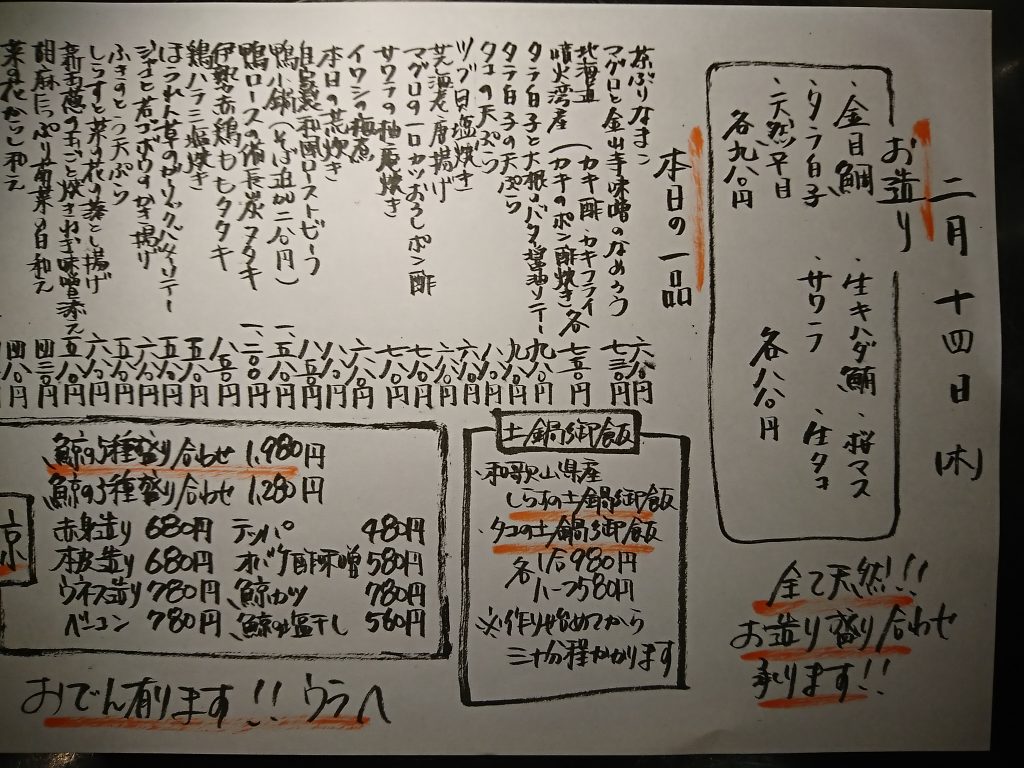 二月十四日(木)
お造り
・金目鯛 ・生キハダ鮪 ・桜マス
・タラ白子 ・サワラ ・生タコ
・天然平目
各九八〇円 各八八〇円
全て天然!!
お造り盛り合わせ
承ります!!
本日の一品
茶ぶりなまこ 六八〇円
マグロと金山寺味噌のなめろう 七三〇円
北海道 (カキ酢・カキフライ
噴火湾産 (カキのポン酢炊き 各七五〇円
タラ白子と大根のバタ醤油ソテー 九八〇円
タラ白子の天ぷら 九八〇円
タコの天ぷら 八八〇円
ツブ貝塩焼き 六八〇円
芝海老唐揚げ 六八〇円
マグロの一口カツおろしポン酢 七八〇円
サワラの柚庵焼き 七八〇円
イワシの梅煮 六八〇円
本日の荒炊き 八八〇円
自家製和風ローストビーフ 八五〇円
鴨小鍋(そば追加二八〇円) 一、五八〇円
鴨ロースの備長炭タタキ 一、二〇〇円
伊勢赤鶏ももタタキ 八五〇円
鶏ハラミ塩焼き 五八〇円
ほうれん草のガーリックバターソテー 五八〇円
ジャコと若ゴボウのかき揚げ 六八〇円
ふきのとう天ぷら 五八〇円
しらすと菜の花の落とし揚げ 六八〇円
新玉葱の丸ごと焼きねぎ味噌添え 五八〇円
胡麻たっぷり青菜の白和え 四三〇円
菜の花からし和え 四八〇円
土鍋御飯
・和歌山県産
しらすの土鍋御飯
・タコの土鍋御飯
各1合980円
ハーフ580円
※作り始めてから
三十分程かかります
鯨の5種盛り合わせ 1,980円
鯨の3種盛り合わせ 1,280円
赤身造り 680円 テッパ 480円
本皮造り 680円 オバケ酢味噌 580円
ウネス造り 780円 鯨カツ 780円
ベーコン 780円 鯨の塩干し 560円
おでん有ります!! ウラへ